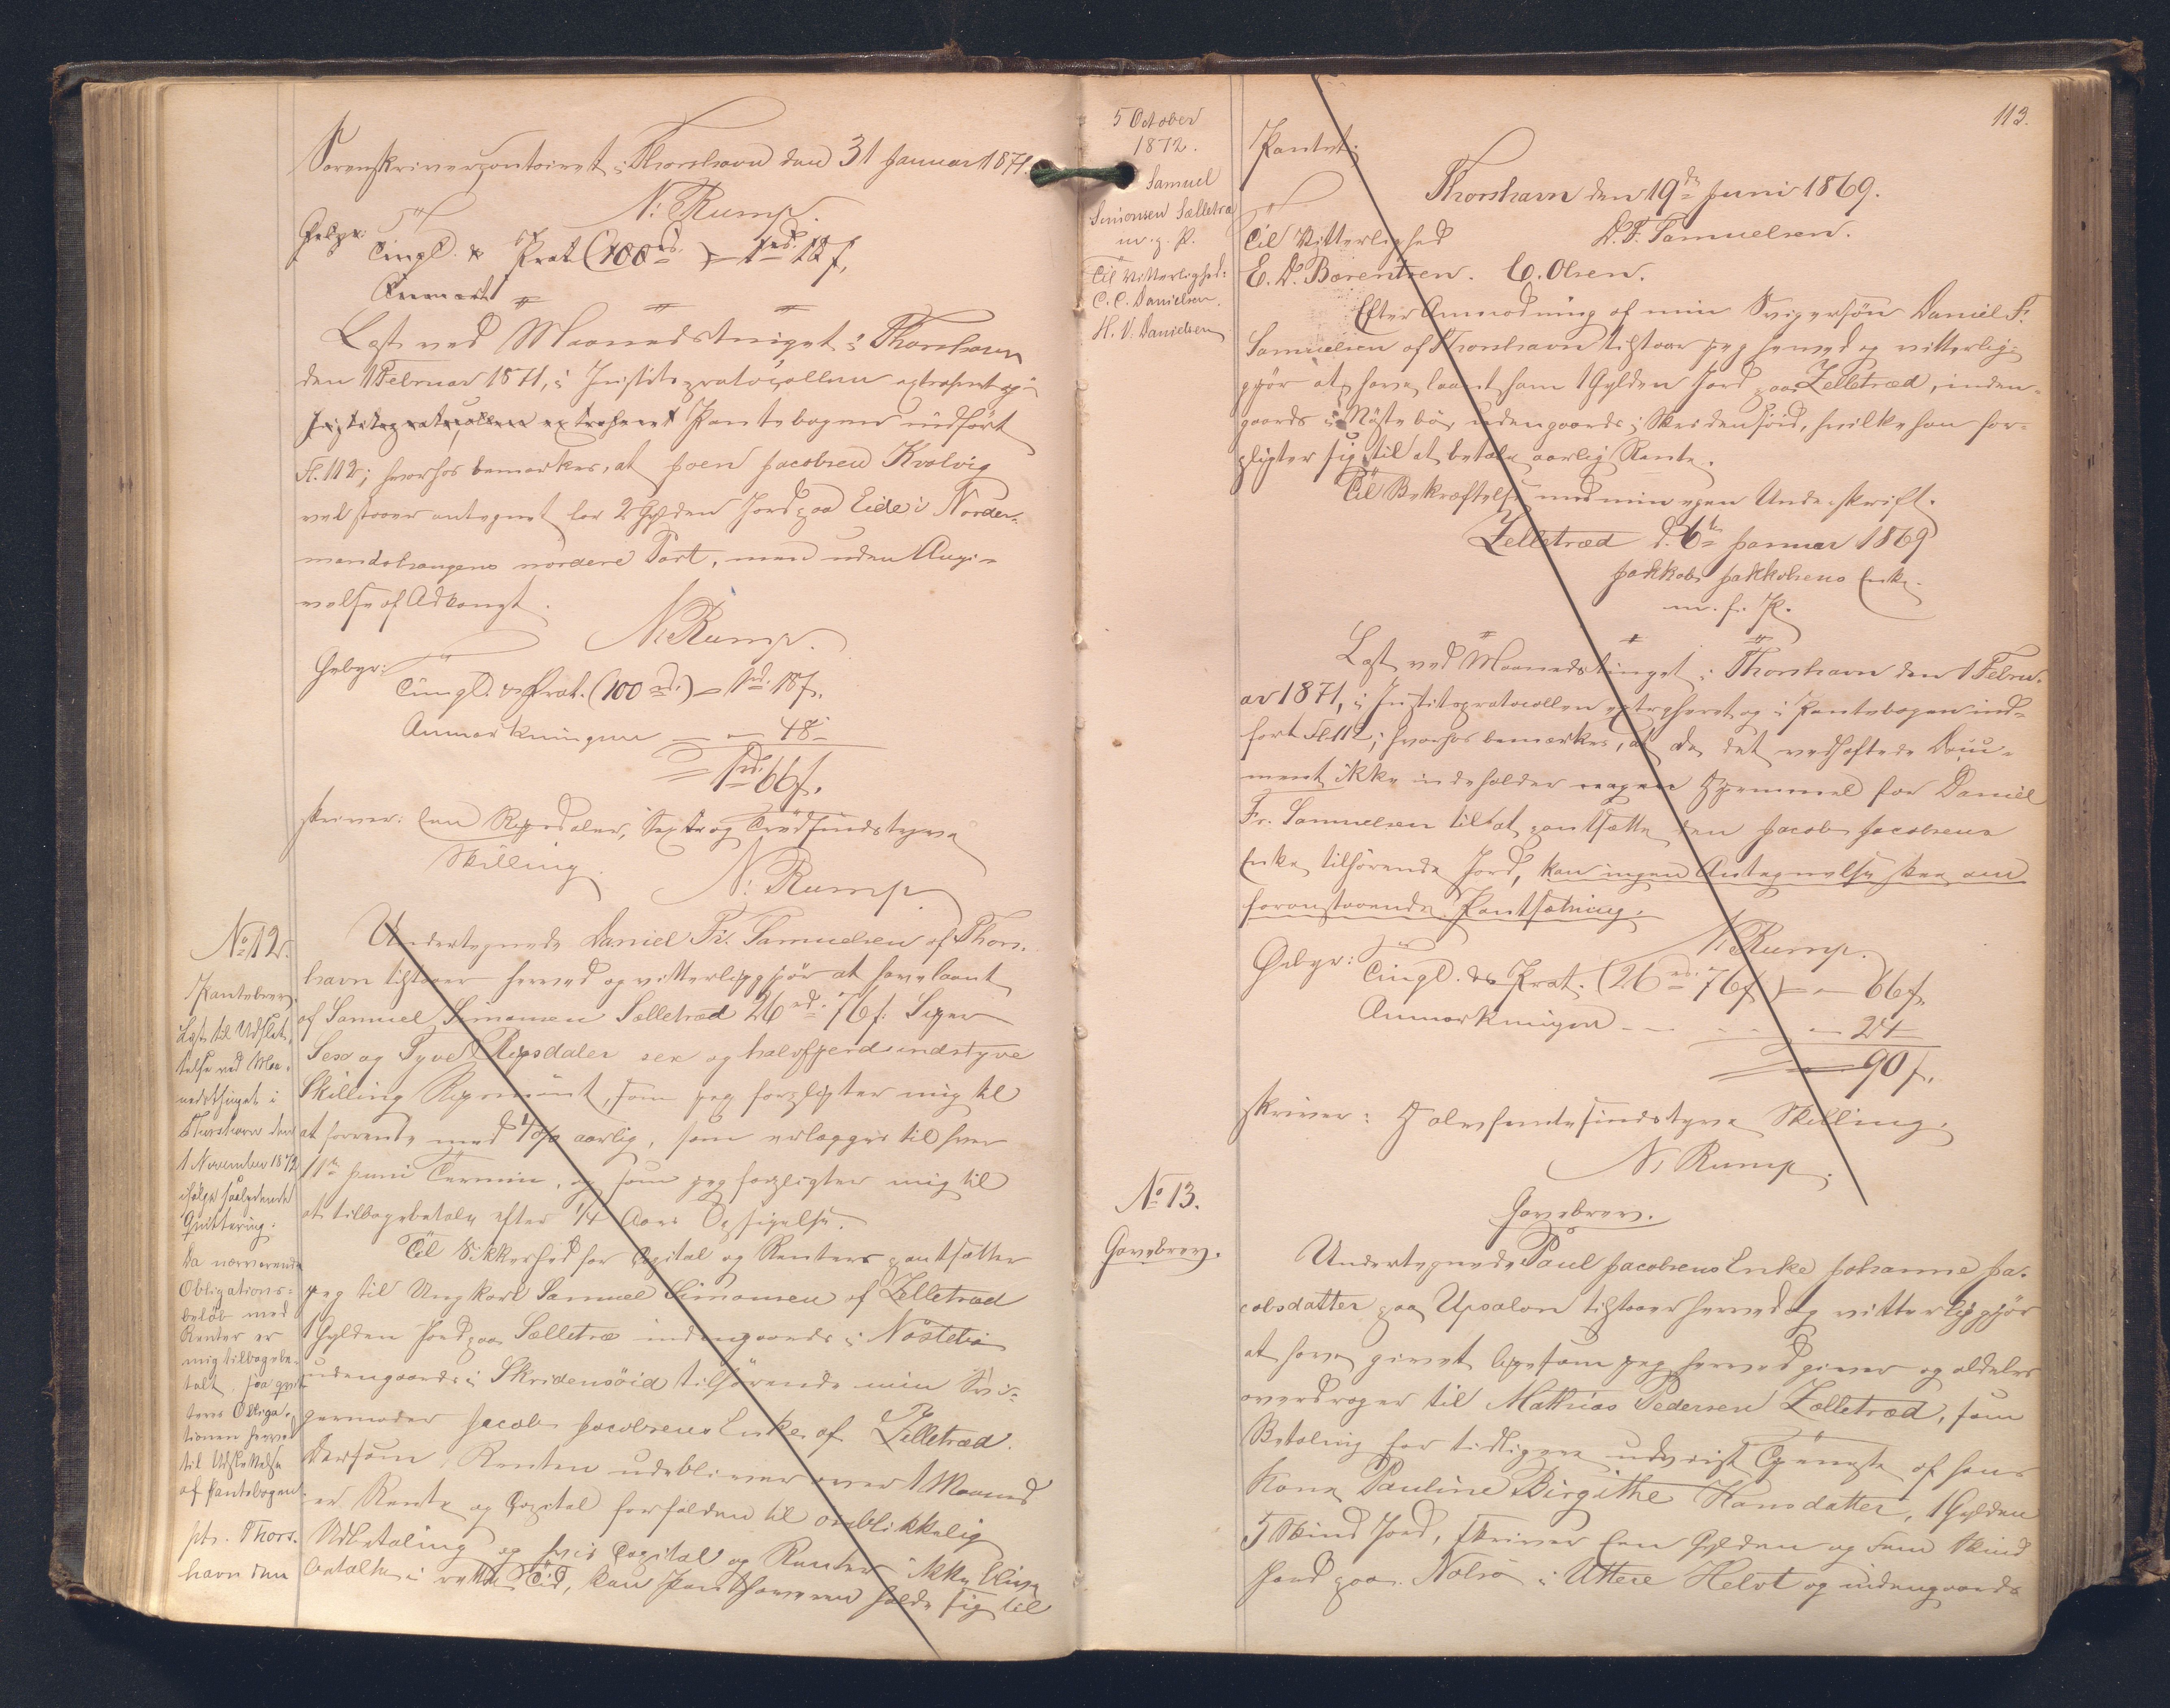 Sorenskrivercontoiret i Thorshavn den 31 Januar 1871.
N. Rump.
Gebyr:
Tingl. & Prot. (100 rd.) - 1 rd. 18 s.
Anmærk
Læst ved Maanedstinget i Thorshavn
den 1 Februar 1871, i Justitsprotocollen extraheret og i
Justitsprotocollen extraheret Pantebogen indført
Fl. 112; hvorhos bemærkes, at Joen Jacobsen Kvalvig
vel staaer antegnet for 2 Gylden Jord paa Eide i Norder-
mandshaugens nordere Part, men uden Angi-
velse af Adkomst.
N. Rump.
Gebyr:
Tingl. & Prot. (100 rd.) - 1 rd. 18 s.
Anmærkningen - - 48 -
1 rd. 66 s.
skriver: Een Rigsdaler, Sex og Tredsindstyve
Skilling.
N. Rump
No 12.
Pantebrev.
Læst til Udslet-
telse ved Maa-
nedsthinget i
Thorshavn den
1 November 1872
ifølge saalydende
Quittering:
Da nærværende
Obligations-
beløb med
Renter er
mig tilbagebe-
talt, saa qvit-
teres Obliga-
tionen herved
til Udslettelse
af Pantebogen.
pt. Thors-
havn den
Undertegnede Daniel Fr. Samuelsen af Thors-
havn tilstaaer herved og vitterliggjør at have laant
af Samuel Simonsen Sælletræd 26 rd. 76 s. Siger
Sex og Tyve Rigsdaler sex og halvfjerdsindstyve
Skilling Rigsmønt, som jeg forpligter mig til
at forrente med 4 % aarlig, som erlægges til hver
11te Juni Termin, og som jeg forpligter mig til
at tilbagebetale efter 1/4 Aars Opsigelse.
Til Sikkerhed for Capital og Renters pantsætter
jeg til Ungkarl Samuel Simonsen af Zelletræd
1 Gylden Jord paa Sælletræ indengaards i Nøstebø
udengaards i Skridensøid tilhørende min Svi-
germoder Jacob Jacobsens Enke af Zelletræd.
Dersom Renten udebliver over 1 Maaned
er Rente og Capital forfalden til øieblikkelig
Udbetaling og hvis Capital og Renter ikke blive
betalte i rette Tid, kan Panthaveren holde sig til
5 October
1872.
Samuel
Simonsen Sælletræ
m. p. P.
Til Vitterlighed:
C. C. Danielsen.
H. V. Danielsen
113.
Pantet.
Thorshavn den 19de Juni 1869.
Til Vitterlighed
D. F. Samuelsen.
E. D. Bærentsen. C. Olsen.
Efter Anmodning af min Svigersøn Daniel F.
Samuelsen af Thorshavn tilstaar jeg herved og vitterlig-
gjør at have laant ham 1 Gylden Jord paa Zelletræd, inden-
gaards i Nøstebø, udengaards i Skridensøid, hvilke han for-
pligter sig til at betale aarlig Rente.
Til Bekræftelse med min egen Underskrift.
Zelletræd d. 6te Januar 1869
Jakkob Jakkobsens Enke.
m. f. P.
Læst ved Maanedstinget i Thorshavn den 1 Febru-
ar 1871, i Justitsprotocollen extraheret og i Pantebogen ind-
ført Fl. 112; hvorhos bemærkes, at da det vedhæftede Docu-
ment ikke indeholder nogen Hjemmel for Daniel
Fr. Samuelsen til at pantsætte den Jacob Jacobsens
Enke tilhørende Jord, kan ingen Antegnelse skee om
foranstaaende Pantsætning.
N. Rump.
Gebyr:
Tingl. & Prot. (26 rd. 76 s.) - - 66 s.
Anmærkningen - - - 24 -
90 s.
skriver: Halvfemtesindstyve Skilling.
N. Rump.
No 13.
Gavebrev.
Gavebrev.
Undertegnede Paul Jacobsens Enke Johanne Ja-
cobsdatter paa Upsalon tilstaaer herved og vitterliggjør
at have givet ligesom jeg herved giver og aldeles
overdrager til Mathias Pedersen Zælletræd, som
Betaling for tidligere udviist Tjeneste af hans
Kone Pauline Birgithe Hansdatter, 1 Gylden
5 Skind Jord, skriver Een Gylden og Fem Skind
Jord paa Nolsø i Uttere Helvt og indengaards